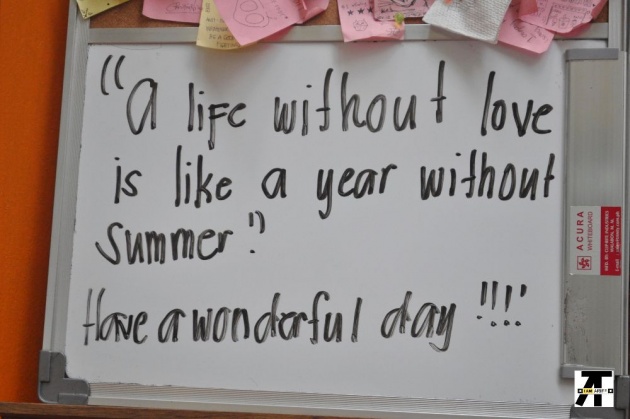 "A life without love
is like a year without
summer."
Have a wonderful day !!!!
ACURA
WHITEBOARD